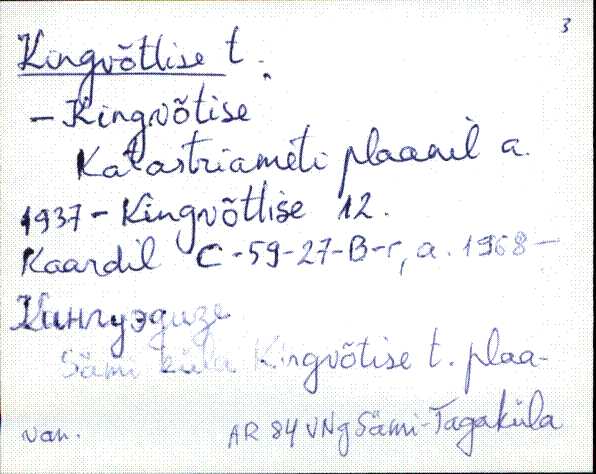 3
Kingvõtlise t.
– Kingvõtise
Katastriameti plaanil a.
1937 – Kingvõtlise 12.
Kaardil C-59-27-B-г, a. 1968 –
Кингуэдизе
Sämi küla Kingvõtise t. plaa-
van. AR 84 VNg Sämi-Tagaküla